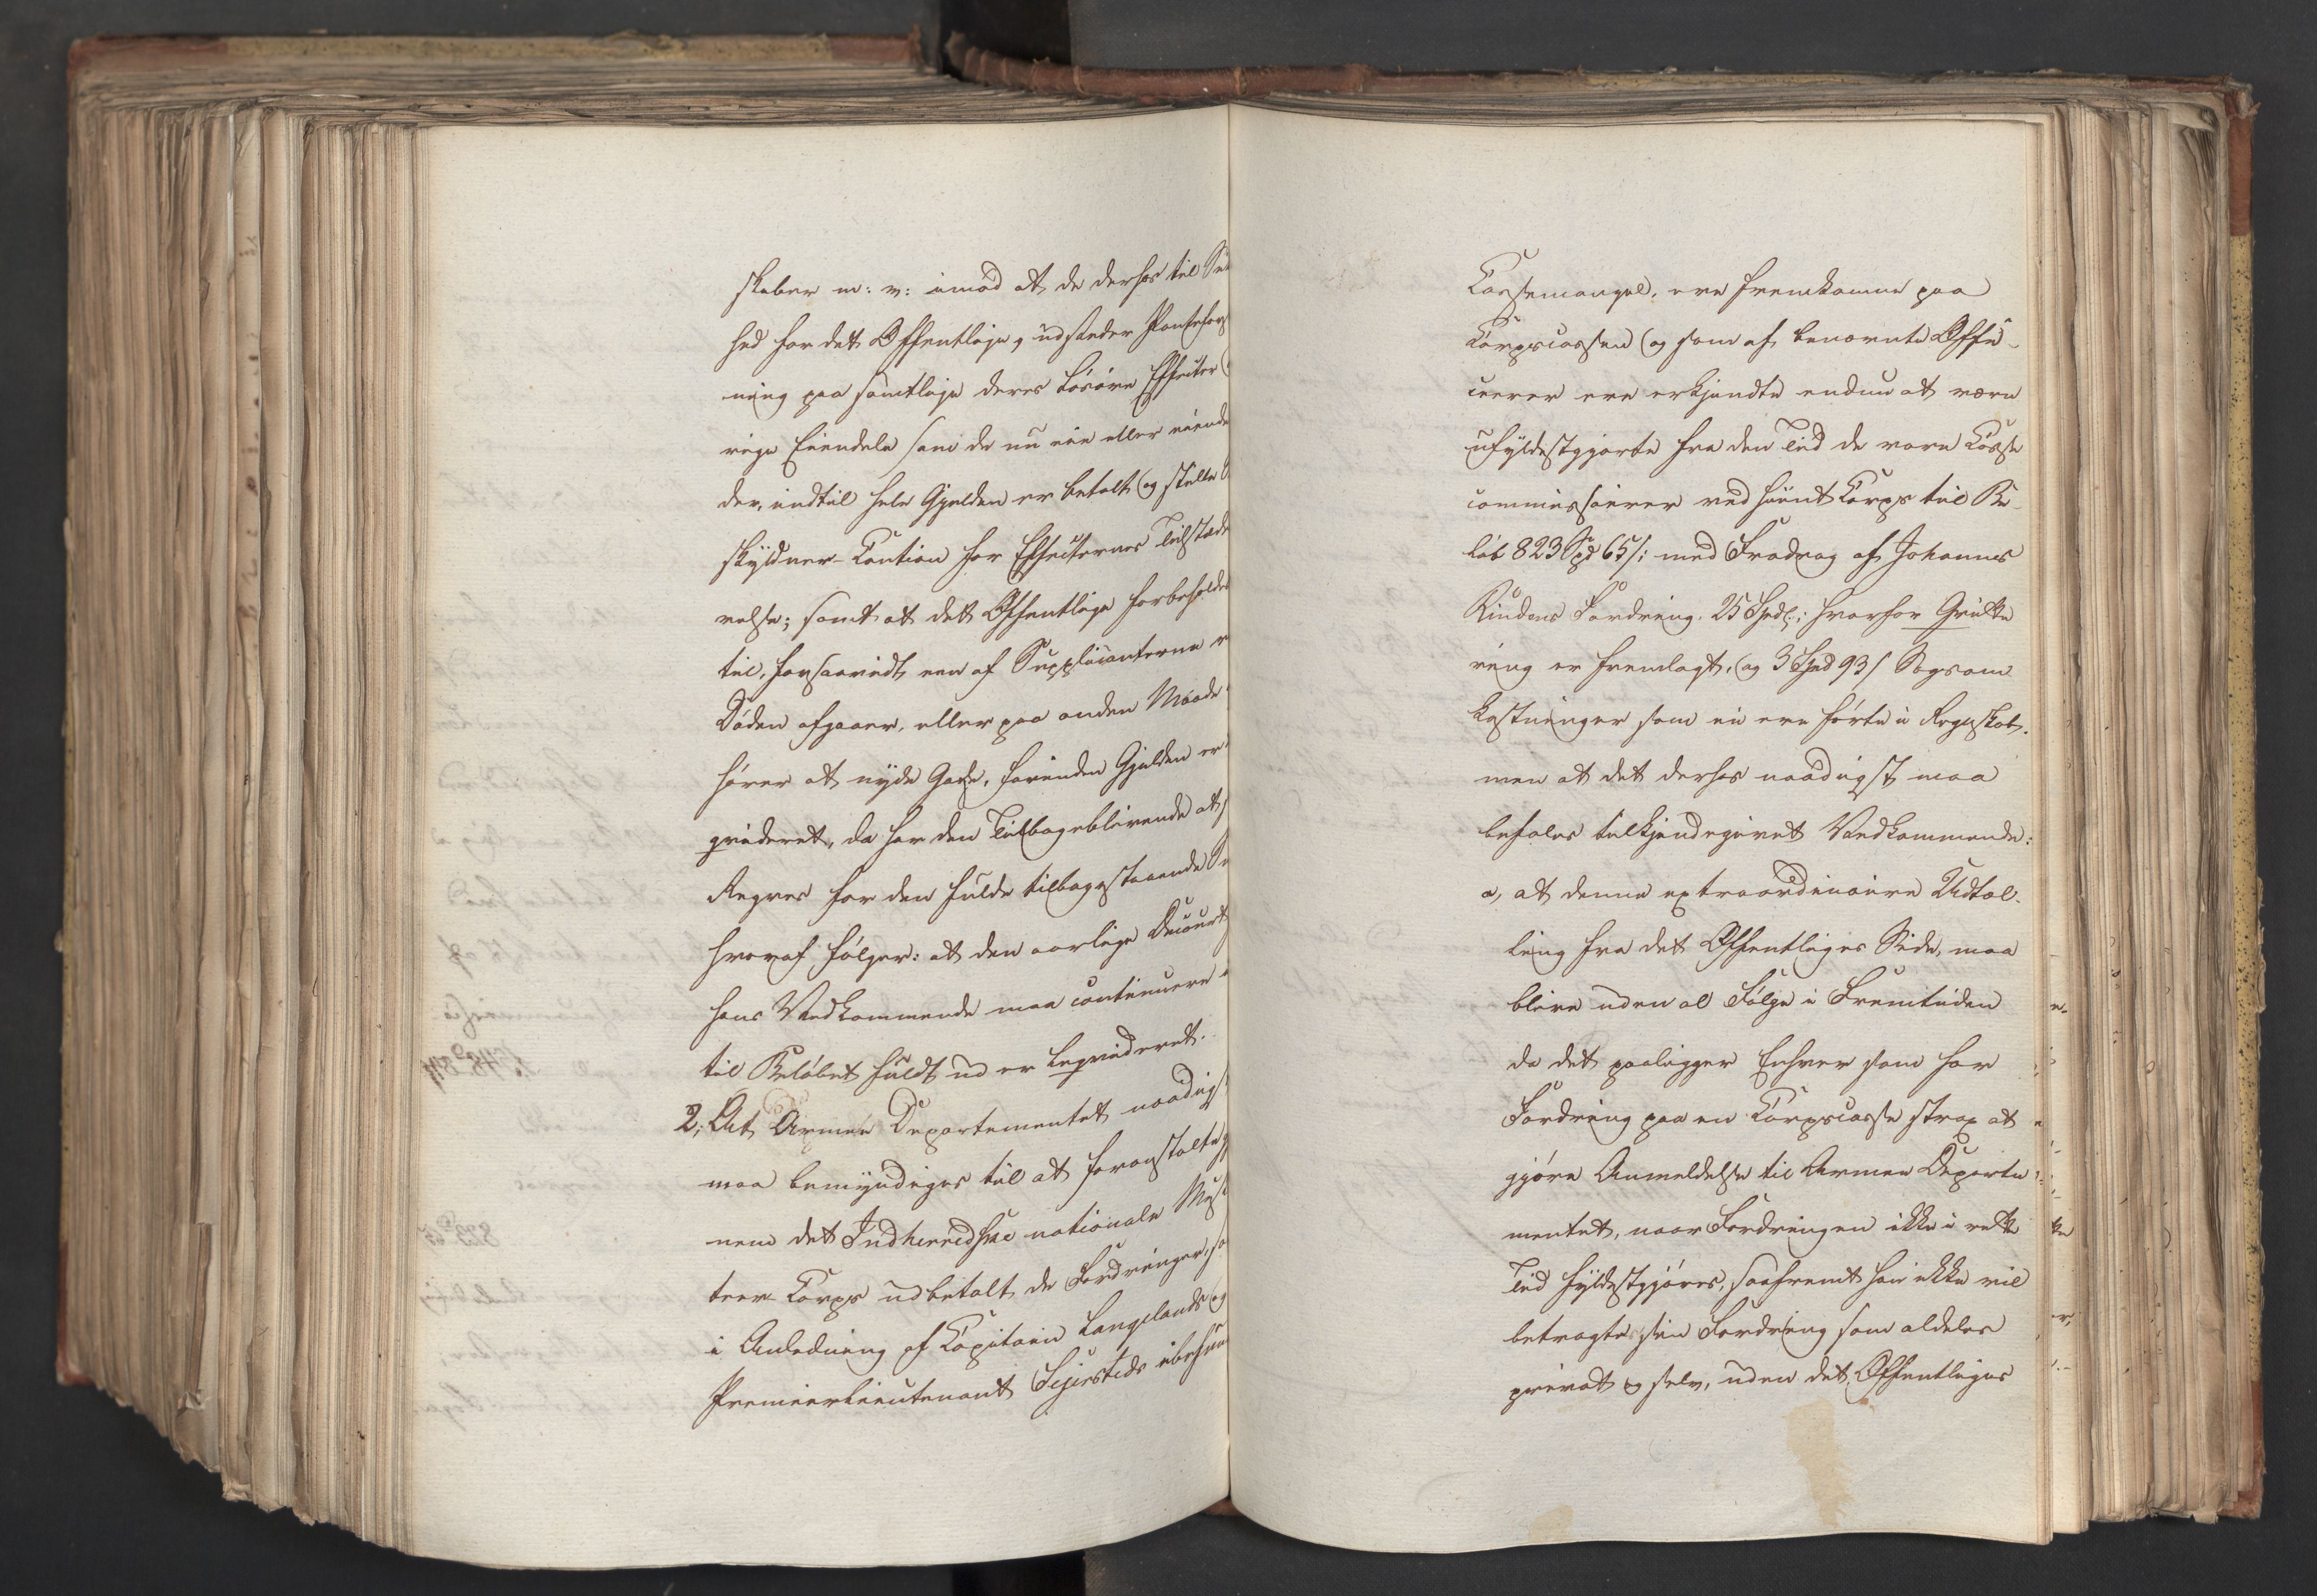 skaber m: v: imod at de derhos til
hed for det Offentlige, udsteder Pantefor
ning paa samtlige deres Løsøre Effecter
rige Eiendele som de nu eie eller eiende
der, indtil hele Gjelden er betalt (og stille
skyldner-Caution for Effecternes Tilstæde
relse; samt at det Offentlige forbeholdes
til, forsaavidt een af Supplicanterne
Døden afgaaer, eller paa anden Maade
hører at nyde Gage, forinden Gjelden er
qvideret, da har den Tilbageblivende at
Regres for den fulde tilbagestaaende
hvoraf følger: at den aarlige Decourt
hans Vedkommende maa continuere
til Beløbet fuldt ud er liqvideret.
2, At Armee Departementet naadigst
maa bemyndiges til at foranstalte
nem det Indherredske nationale Musq
teer-Corps udbetalt de Fordringer, so
i Anledning af Capitain Langelands og
Premierlieutenant Sejersteds
Cassemangel, ere fremkomne paa
Corpscassen (og som af benævnte Offi-
cerer ere erkjendte endnu at være
ufyldestgjorte fra den Tid de vare Casse
commissairer ved hiint Corps til Be-
løb 823 Spd 65 s: med Fradrag af Johannes
Rindens Fordring. 25 Spd: hvorfor Qvitte
ring er fremlagt, og 3 Spd 93 s Sagsom
kostninger som ei ere førte i Regnskab.
men at det derhos naadigst maa
befales tilkjendegivet Vedkommende:
a, at denne extraordinaire Udtæl-
ling fra det Offentliges Side, maa
blive uden al Følge i Fremtiden
da det paaligger Enhver som har
Fordring paa en Corpscasse strax at
gjøre Anmeldelse til Armee Departe
mentet, naar Fordringen ikke i rette
Tid fyldestgjøres, saafremt han ikke vil
betragte sin Fordring som aldeles
privat og selv, uden det Offentliges